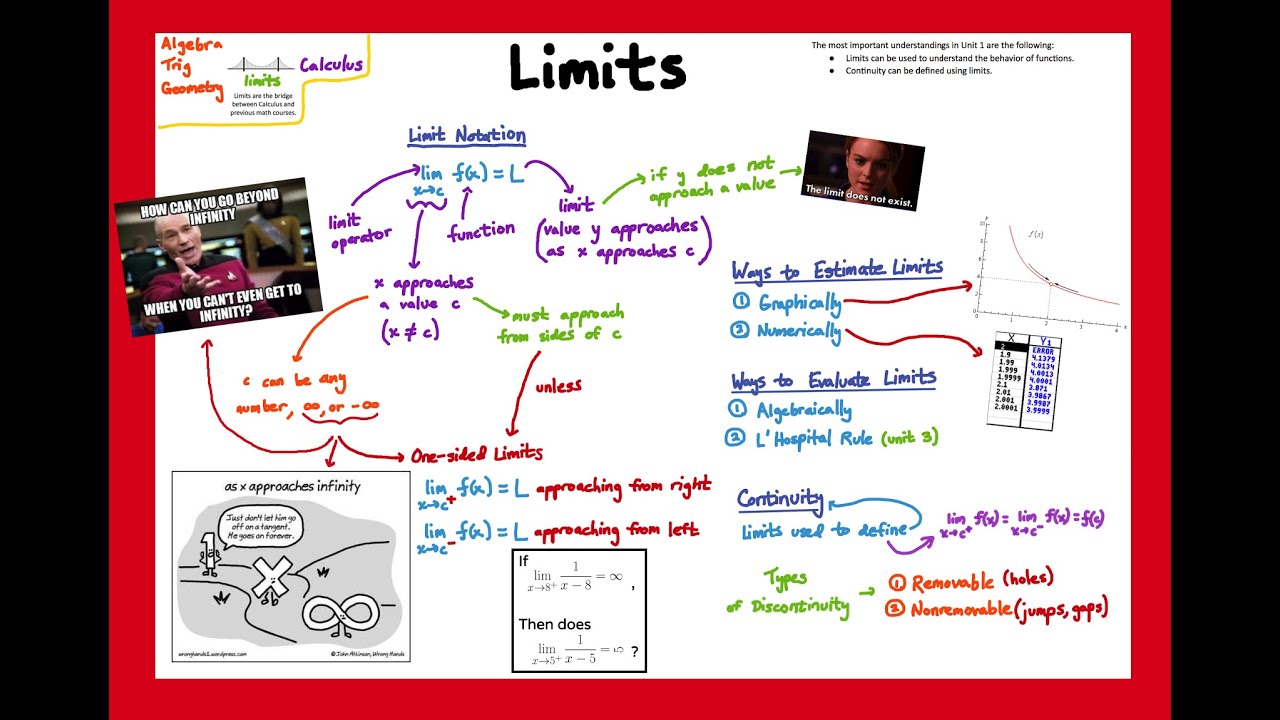 Algebra
Trig
Geometry
limits
Calculus
Limits are the bridge
between Calculus and
previous math courses.
Limits
The most important understandings in Unit 1 are the following:
● Limits can be used to understand the behavior of functions.
● Continuity can be defined using limits.
Limit Notation
lim f(x) = L
x→c
limit
operator
function
limit
(value y approaches
as x approaches c)
if y does not
approach a value
The limit does not exist.
HOW CAN YOU GO BEYOND
INFINITY
WHEN YOU CAN'T EVEN GET TO
INFINITY?
x approaches
a value c
(x ≠ c)
must approach
from sides of c
unless
c can be any
number, ∞, or -∞
One-sided Limits
lim f(x) = L approaching from right
x→c+
lim f(x) = L approaching from left
x→c-
as x approaches infinity
Just don't let him go
off on a tangent.
He goes on forever.
1
X
∞
wronghands1.wordpress.com
© John Atkinson, Wrong Hands
If
lim 1/(x − 8) = ∞ ,
x→8+
Then does
lim 1/(x − 5) = 5 ?
x→5+
Ways to Estimate Limits
① Graphically
② Numerically
y
10
8
6
4
2
0
f(x)
1 2 3 4 x
X Y1
2 ERROR
1.9 4.1379
1.99 4.0134
1.999 4.0013
1.9999 4.0001
2.1 3.871
2.01 3.9867
2.001 3.9987
2.0001 3.9999
Ways to Evaluate Limits
① Algebraically
② L'Hospital Rule (unit 3)
Continuity
Limits used to define
lim f(x) = lim f(x) = f(c)
x→c+ x→c-
Types
of Discontinuity
① Removable (holes)
② Nonremovable (jumps, gaps)